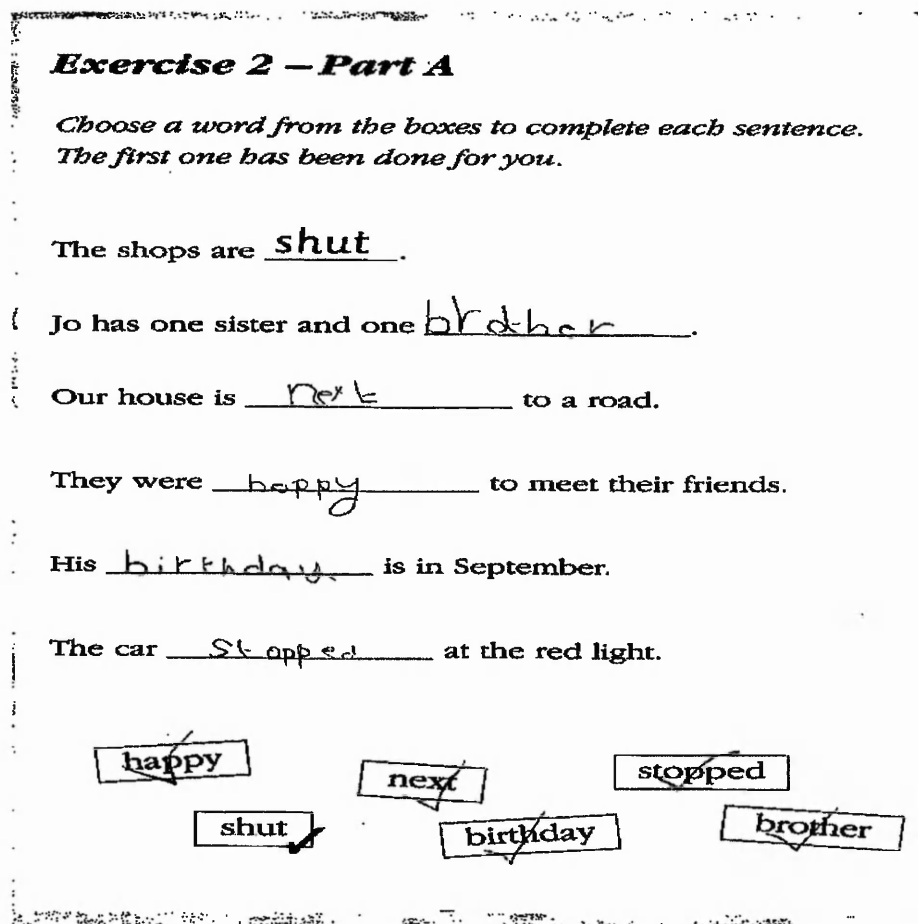 Exercise 2 – Part A
Choose a word from the boxes to complete each sentence.
The first one has been done for you.
The shops are shut.
Jo has one sister and one brother.
Our house is next to a road.
They were happy to meet their friends.
His birthday. is in September.
The car stopped at the red light.
happy next stopped
shut birthday brother